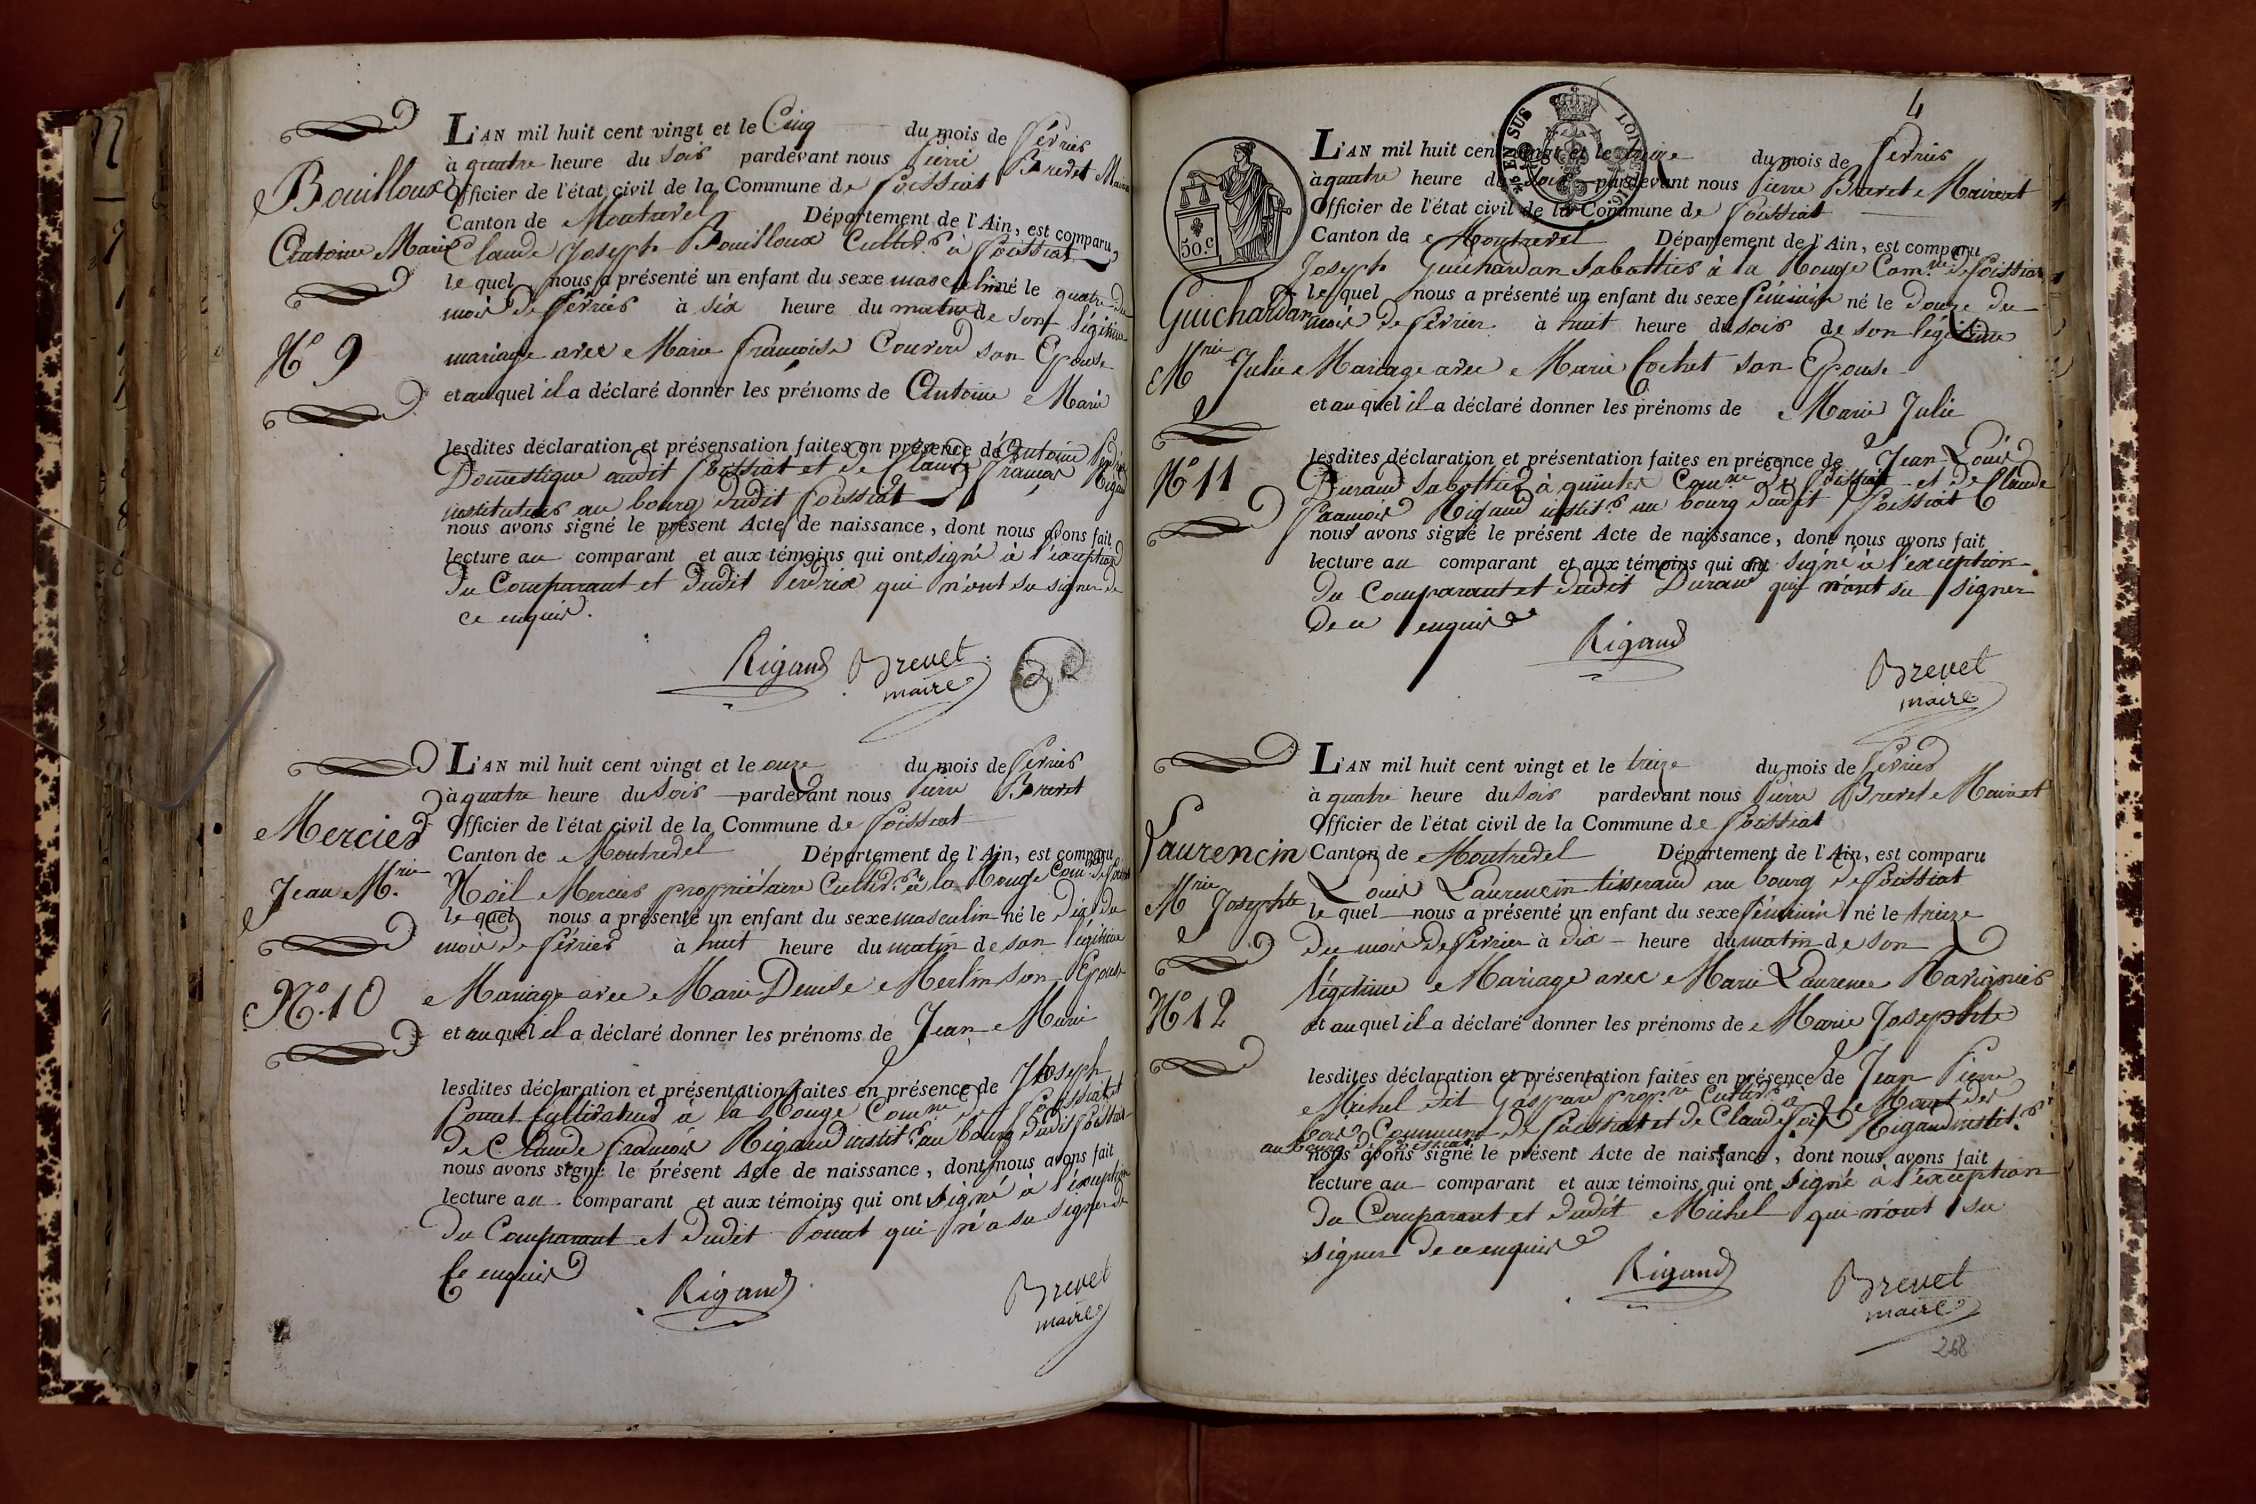 Bouilloux
Antoine Marie
N.º 9
L'AN mil huit cent vingt et le Cinq du mois de février
à quatre heure du soir pardevant nous Pierre Brevet Maire
Officier de l'état civil de la Commune de Foissiat
Canton de Montrevel Département de l'Ain, est comparu
Claude Joseph Bouilloux Cultiv.r à Foissiat
le quel nous a présenté un enfant du sexe masculin né le quatre du
mois de février à six heure du matin de son légitime
mariage avec Marie françoise Couvert son Epouse
et au quel il a déclaré donner les prénoms de Antoine Marie
lesdites déclaration et présensation faites en présence de Antoine Perdrix
Domestique audit foissiat et de Claude françois Rigaud
instituteur au bourg dudit foissiat
nous avons signé le présent Acte de naissance, dont nous avons fait
lecture au comparant et aux témoins qui ont signé à l'exception
du Comparant et dudit Perdrix qui n'ont su signer de
ce enquis.
Rigaud Brevet
maire
Mercier
Jean M.rie
N.º 10
L'AN mil huit cent vingt et le onze du mois de février
à quatre heure du soir pardevant nous Pierre Brevet
Officier de l'état civil de la Commune de foissiat
Canton de Montrevel Département de l'Ain, est comparu
Noël Mercier propriétaire Cultiv.r à la Rouge Com.ne de foissiat
le quel nous a présenté un enfant du sexe masculin né le dix du
mois de février à huit heure du matin de son légitime
Mariage avec Marie Denise Merlin son Epouse
et au quel il a déclaré donner les prénoms de Jean Marie
lesdites déclaration et présentation faites en présence de Joseph
Pomet Cultivateur à la Rouge Comm.ne de foissiat et
de Claude françois Rigaud instit.r au bourg dudit foissiat
nous avons signé le présent Acte de naissance, dont nous avons fait
lecture au comparant et aux témoins qui ont signé à l'exception
du Comparant et dudit Pomet qui n'a su signer de
Ce enquis
Rigaud Brevet
maire
4
EN SUS
50.c
Guichardan
M.rie Julie
N.º 11
L'AN mil huit cent vingt et le treize du mois de février
à quatre heure du soir pardevant nous Pierre Brevet Maire et
Officier de l'état civil de la Commune de foissiat
Canton de Montrevel Département de l'Ain, est comparu
Joseph Guichardan Sabottier à la Rouge Com.ne de foissiat
le quel nous a présenté un enfant du sexe féminin né le douze du
mois de février à huit heure du soir de son légitime
Mariage avec Marie Cochet son Epouse
et au quel il a déclaré donner les prénoms de Marie Julie
lesdites déclaration et présentation faites en présence de Jean Louis
Durand Sabottier à quintes Com.ne de foissiat et de Claude
françois Rigaud instit.r au bourg dudit foissiat
nous avons signé le présent Acte de naissance, dont nous avons fait
lecture au comparant et aux témoins qui ont signé à l'exception
du Comparant et dudit Durand qui n'ont su signer
de ce enquis
Rigaud
Brevet
maire
Laurencin
M.rie Josephte
N.º 12
L'AN mil huit cent vingt et le treize du mois de février
à quatre heure du soir pardevant nous Pierre Brevet Maire et
Officier de l'état civil de la Commune de foissiat
Canton de Montrevel Département de l'Ain, est comparu
Louis Laurencin tisserand au bourg de foissiat
le quel nous a présenté un enfant du sexe féminin né le treize
du mois de février à dix heure du matin de son
légitime Mariage avec Marie Laurence
et au quel il a déclaré donner les prénoms de Marie Josephte
lesdites déclaration et présentation faites en présence de Jean Pierre
Michel dit Gaspard prop.re Cultiv.r à
Commune de foissiat et de Claude f.ois Rigaud instit.r
au bourg de foissiat
nous avons signé le présent Acte de naissance, dont nous avons fait
lecture au comparant et aux témoins qui ont signé à l'exception
du Comparant et dudit Michel qui n'ont su
signer de ce enquis
Rigaud Brevet
maire
268